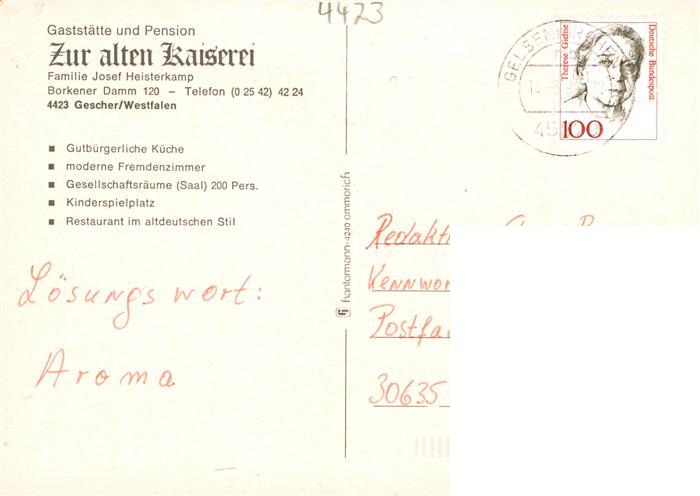 4423
Gaststätte und Pension
Zur alten Kaiserei
Familie Josef Heisterkamp
Borkener Damm 120 – Telefon (0 25 42) 42 24
4423 Gescher/Westfalen
■ Gutbürgerliche Küche
■ moderne Fremdenzimmer
■ Gesellschaftsräume (Saal) 200 Pers.
■ Kinderspielplatz
■ Restaurant im altdeutschen Stil
Lösungswort:
Aroma
hantermann-4240 emmerich
Therese Giehse
Deutsche Bundespost
100
Postfa
30635